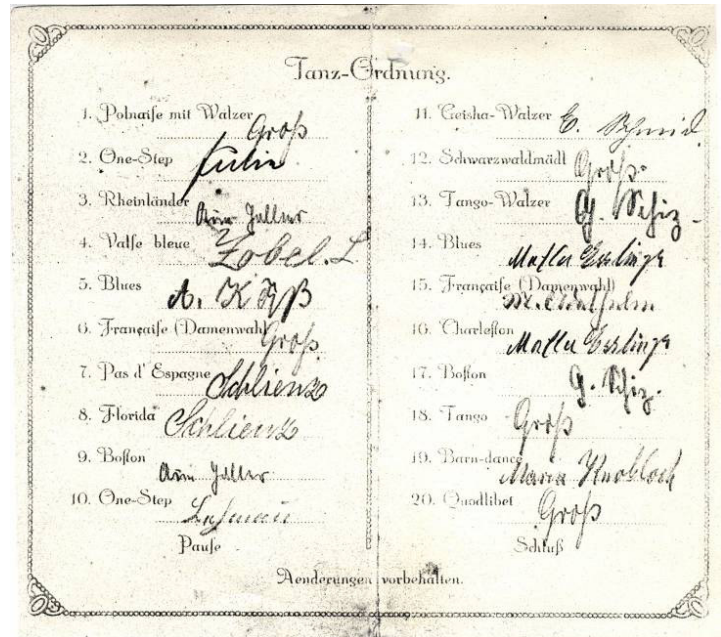 Tanz-Ordnung.
1. Polnaise mit Walzer
Groß
2. One-Step
3. Rheinländer
4. Valse bleue Zobel. L
5. Blues
A.
6. Française (Damenwahl) Groß
7. Pas d' Espagne Schlienz
8. Florida Schlienz
9. Boston
10. One-Step
Pause
11. Geisha-Walzer E. Schmid
12. Schwarzwaldmädl Groß.
13. Tango-Walzer G. Schiz.
14. Blues
15. Française (Damenwahl)
16. Charleston
17. Boston G. Schiz.
18. Tango Groß
19. Barn-dance
Maria Knobloch
20. Quodlibet
Groß
Schluß
Aenderungen vorbehalten.